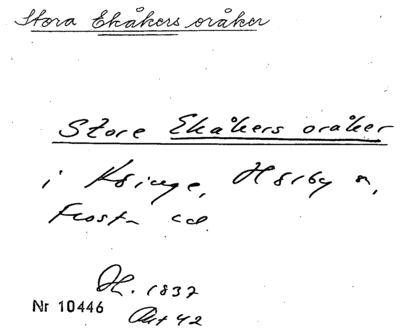 Stora Ekåkers oråker
Store Ekåkers oråker
i Ksinge, Hsrby sn,
Frosta hd
H. 1837
Akt 42
Nr 10446